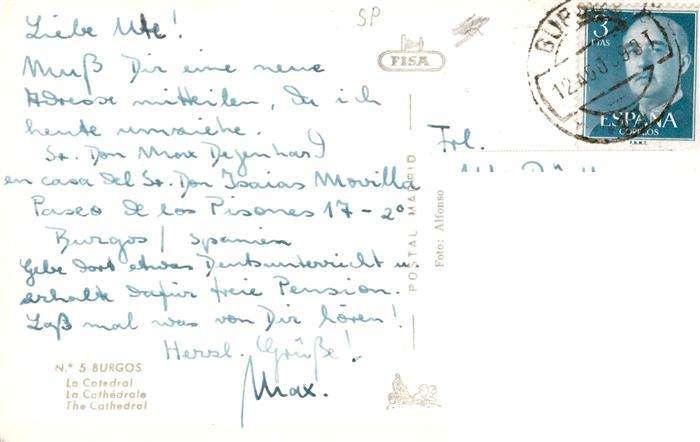 Liebe Ute!
Muß Dir eine neue
Adresse mitteilen, da ich
heute umziehe.
Sr. Don Max Degenhard
en casa del Sr. Don Isaias Movilla
Paseo de los Pisones 17 - 2º
Burgos / Spanien
Gebe dort etwas Deutschunterricht u
erhalte dafür freie Pension.
Laß mal was von Dir hören!
Herzl. Grüße!
Max.
N.º 5 BURGOS
La Catedral
La Cathédrale
The Cathedral
SP
FISA
POSTAL MADRID
Foto: Alfonso
3
PTAS
ESPAÑA
CORREOS
F.N.M.T.
BURGOS
12 AGO
Frl.